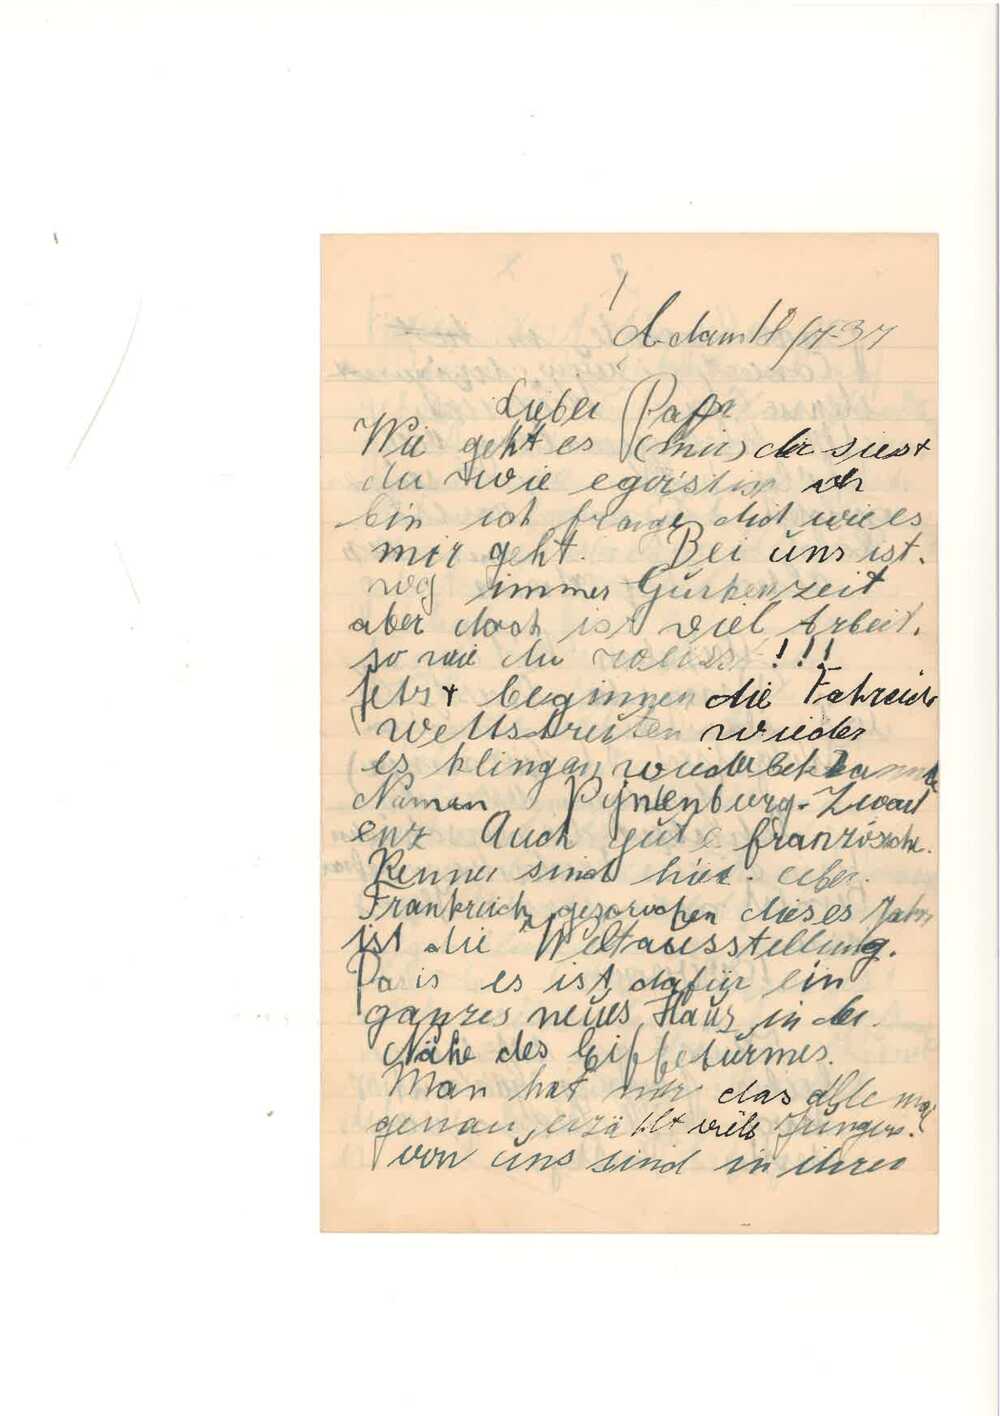 A-dam 18/7-37
Lieber Papa
Wie geht es (mir) dir siest
du wie egoistisch ich
bin ich frage dich wie es
mir geht. Bei uns ist.
nog immer Gurkenzeit
aber doch ist viel Arbeit.
so wie du weisst !!!
Jetst beginnen die Fahrrad
wettstreiten wieder
es klingen wieder bekannte
Namen Pijnenburg-Zwart
enz Auch gute französische.
Renner sind hier. über.
Frankreich gesprochen dieses Jahr
ist die Weltausstellung.
Paris es ist dafür ein
ganzes neues Hauz in der
Nähe des Eiffeturmes.
Man hat mir das alle mal
genau erzählt viele Jungens.
von uns sind in ihrer